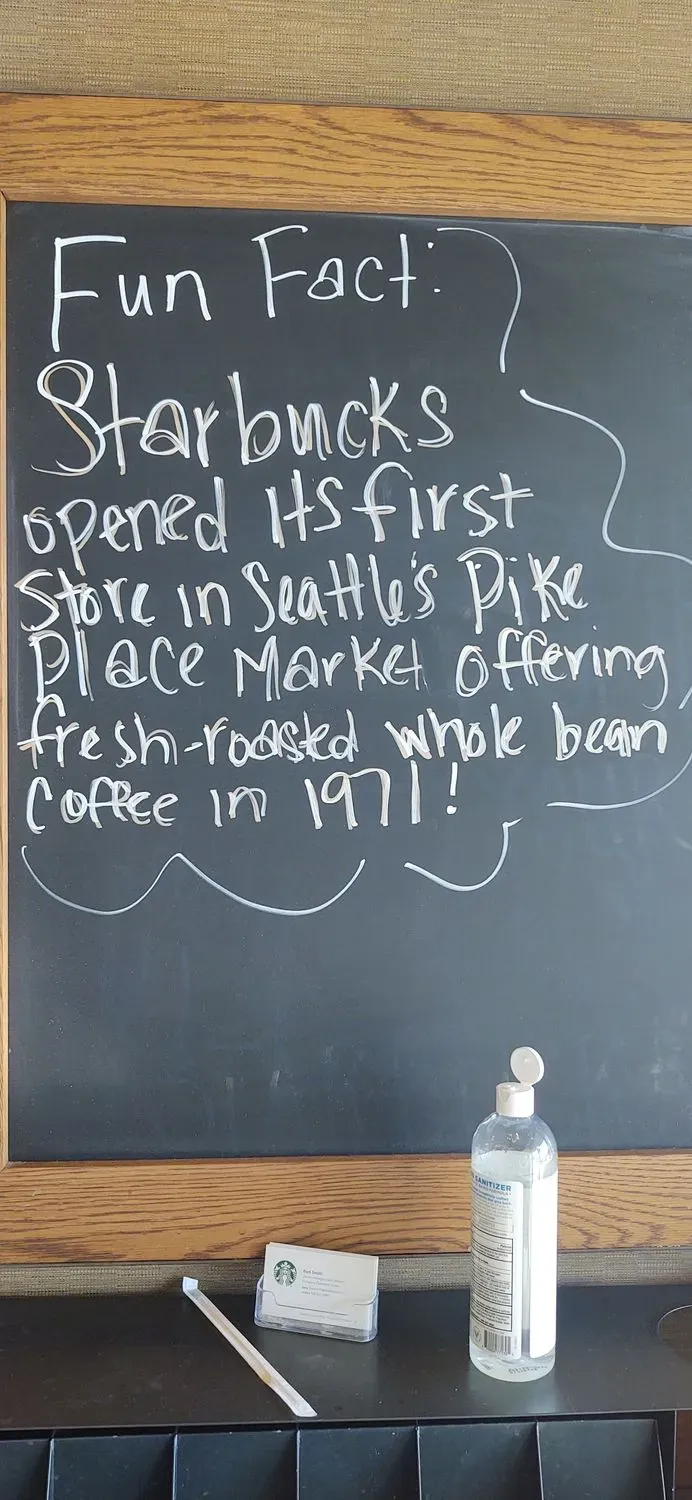 Fun Fact:
Starbucks
opened its first
store in Seattle's Pike
Place Market offering
fresh-roasted whole bean
coffee in 1971!
SANITIZER